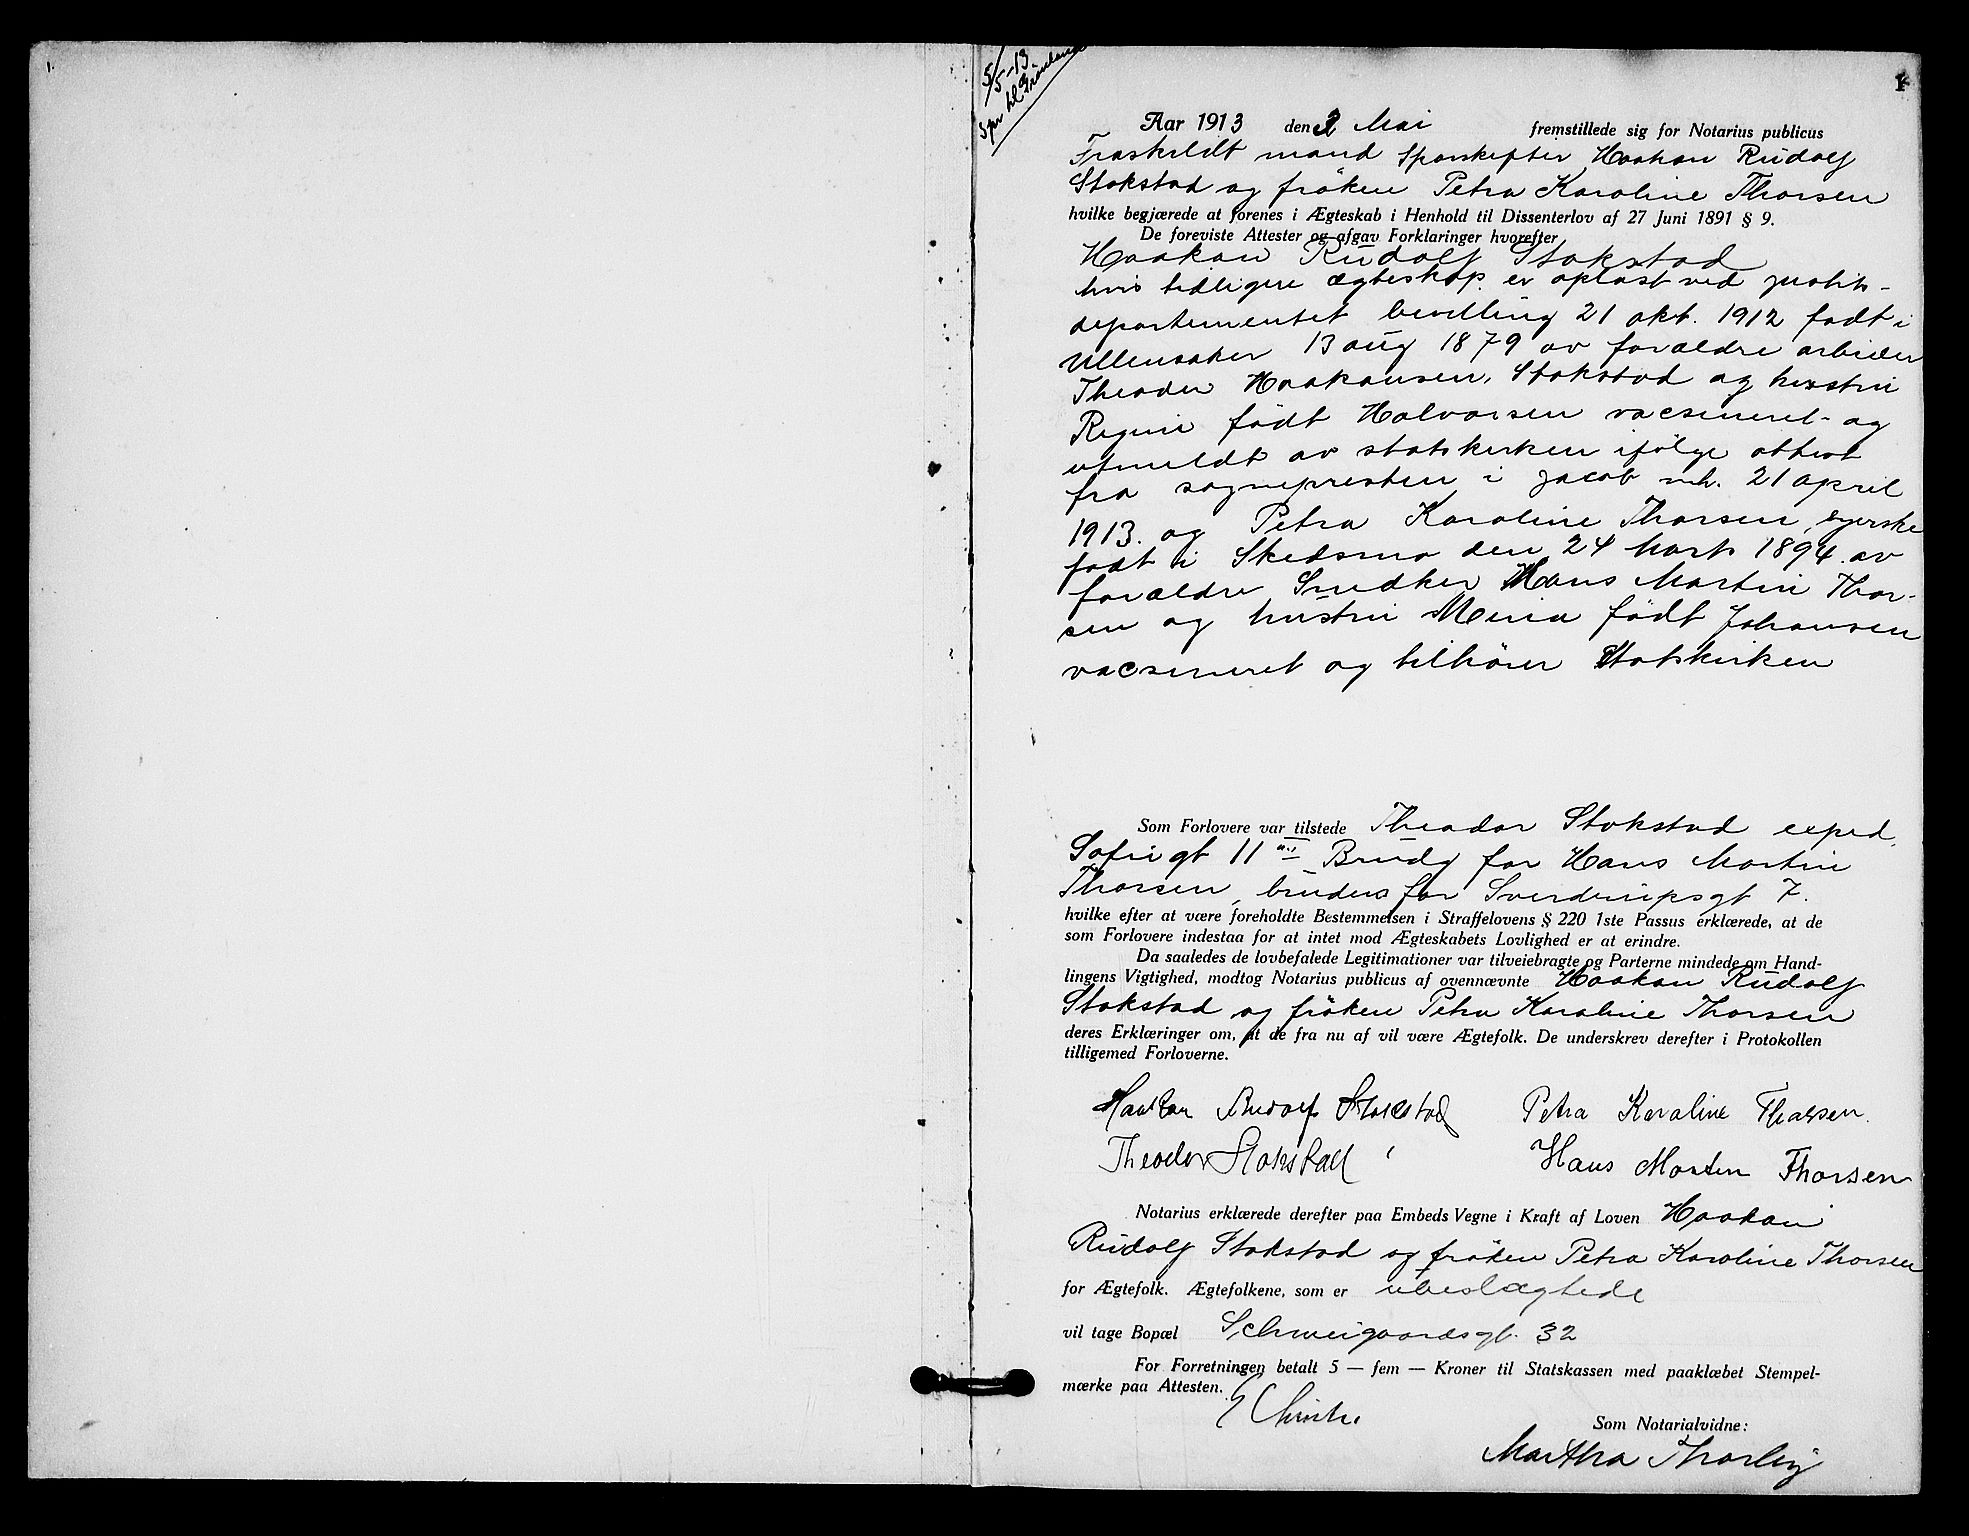 1.
5/5-13
Spr til Grönland
1
Aar 1913 den 3 Mai fremstillede sig for Notarius publicus
Fraskildt mand Sporskifter Haakon Rudolf
Stokstad og fröken Petra Karoline Thorsen
hvilke begjærede at forenes i Ægteskab i Henhold til Dissenterlov af 27 Juni 1891 § 9.
De foreviste Attester og afgav Forklaringer hvorefter
Haakon Rudolf Stokstad
hvis tidligere ægteskap er oplöst ved justits-
departementet bevilling 21 okt. 1912 födt i
Ullensaker 13 aug 1879 av forældre arbeider
Theodor Haakonsen Stokstad og hustru
Regine födt Halvorsen vacsineret og
utmeldt av statskirken ifölge attest
fra sognepresten i Jacob mh. 21 april
1913. og Petra Karoline Thorsen, syerske
födt i Skedsmo den 24 Marts 1894 av
forældre Snedker Hans Martin Thor-
sen og hustru Maria födt Johansen
vacsineret og tilhörer Statskirken
Som Forlovere var tilstede Theodor Stokstad exped.
Sofiegt 11 Brudg far Hans Martin
Thorsen, brudens far Sverdrupsgt 7.
hvilke efter at være foreholdte Bestemmelsen i Straffelovens § 220 1ste Passus erklærede, at de
som Forlovere indestaa for at intet mod Ægteskabets Lovlighed er at erindre.
Da saaledes de lovbefalede Legitimationer var tilveiebragte og Parterne mindede om Hand-
lingens Vigtighed, modtog Notarius publicus af ovennævnte Haakon Rudolf
Stokstad og fröken Petra Karoline Thorsen
deres Erklæringer om, at de fra nu af vil være Ægtefolk. De underskrev derefter i Protokollen
tilligemed Forloverne.
Haakon Rudolf Stokstad Petra Karoline Thorsen.
Theodor Stokstad Hans Morten Thorsen
Notarius erklærede derefter paa Embeds Vegne i Kraft af Loven Haakon
Rudolf Stokstad og fröken Petra Karoline Thorsen
for Ægtefolk. Ægtefolkene, som er ubeslægtede
vil tage Bopæl Schweigaardsgt. 32
For Forretningen betalt 5 — fem — Kroner til Statskassen med paaklæbet Stempel-
mærke paa Attesten.
E Christie
Som Notarialvidne:
Martha